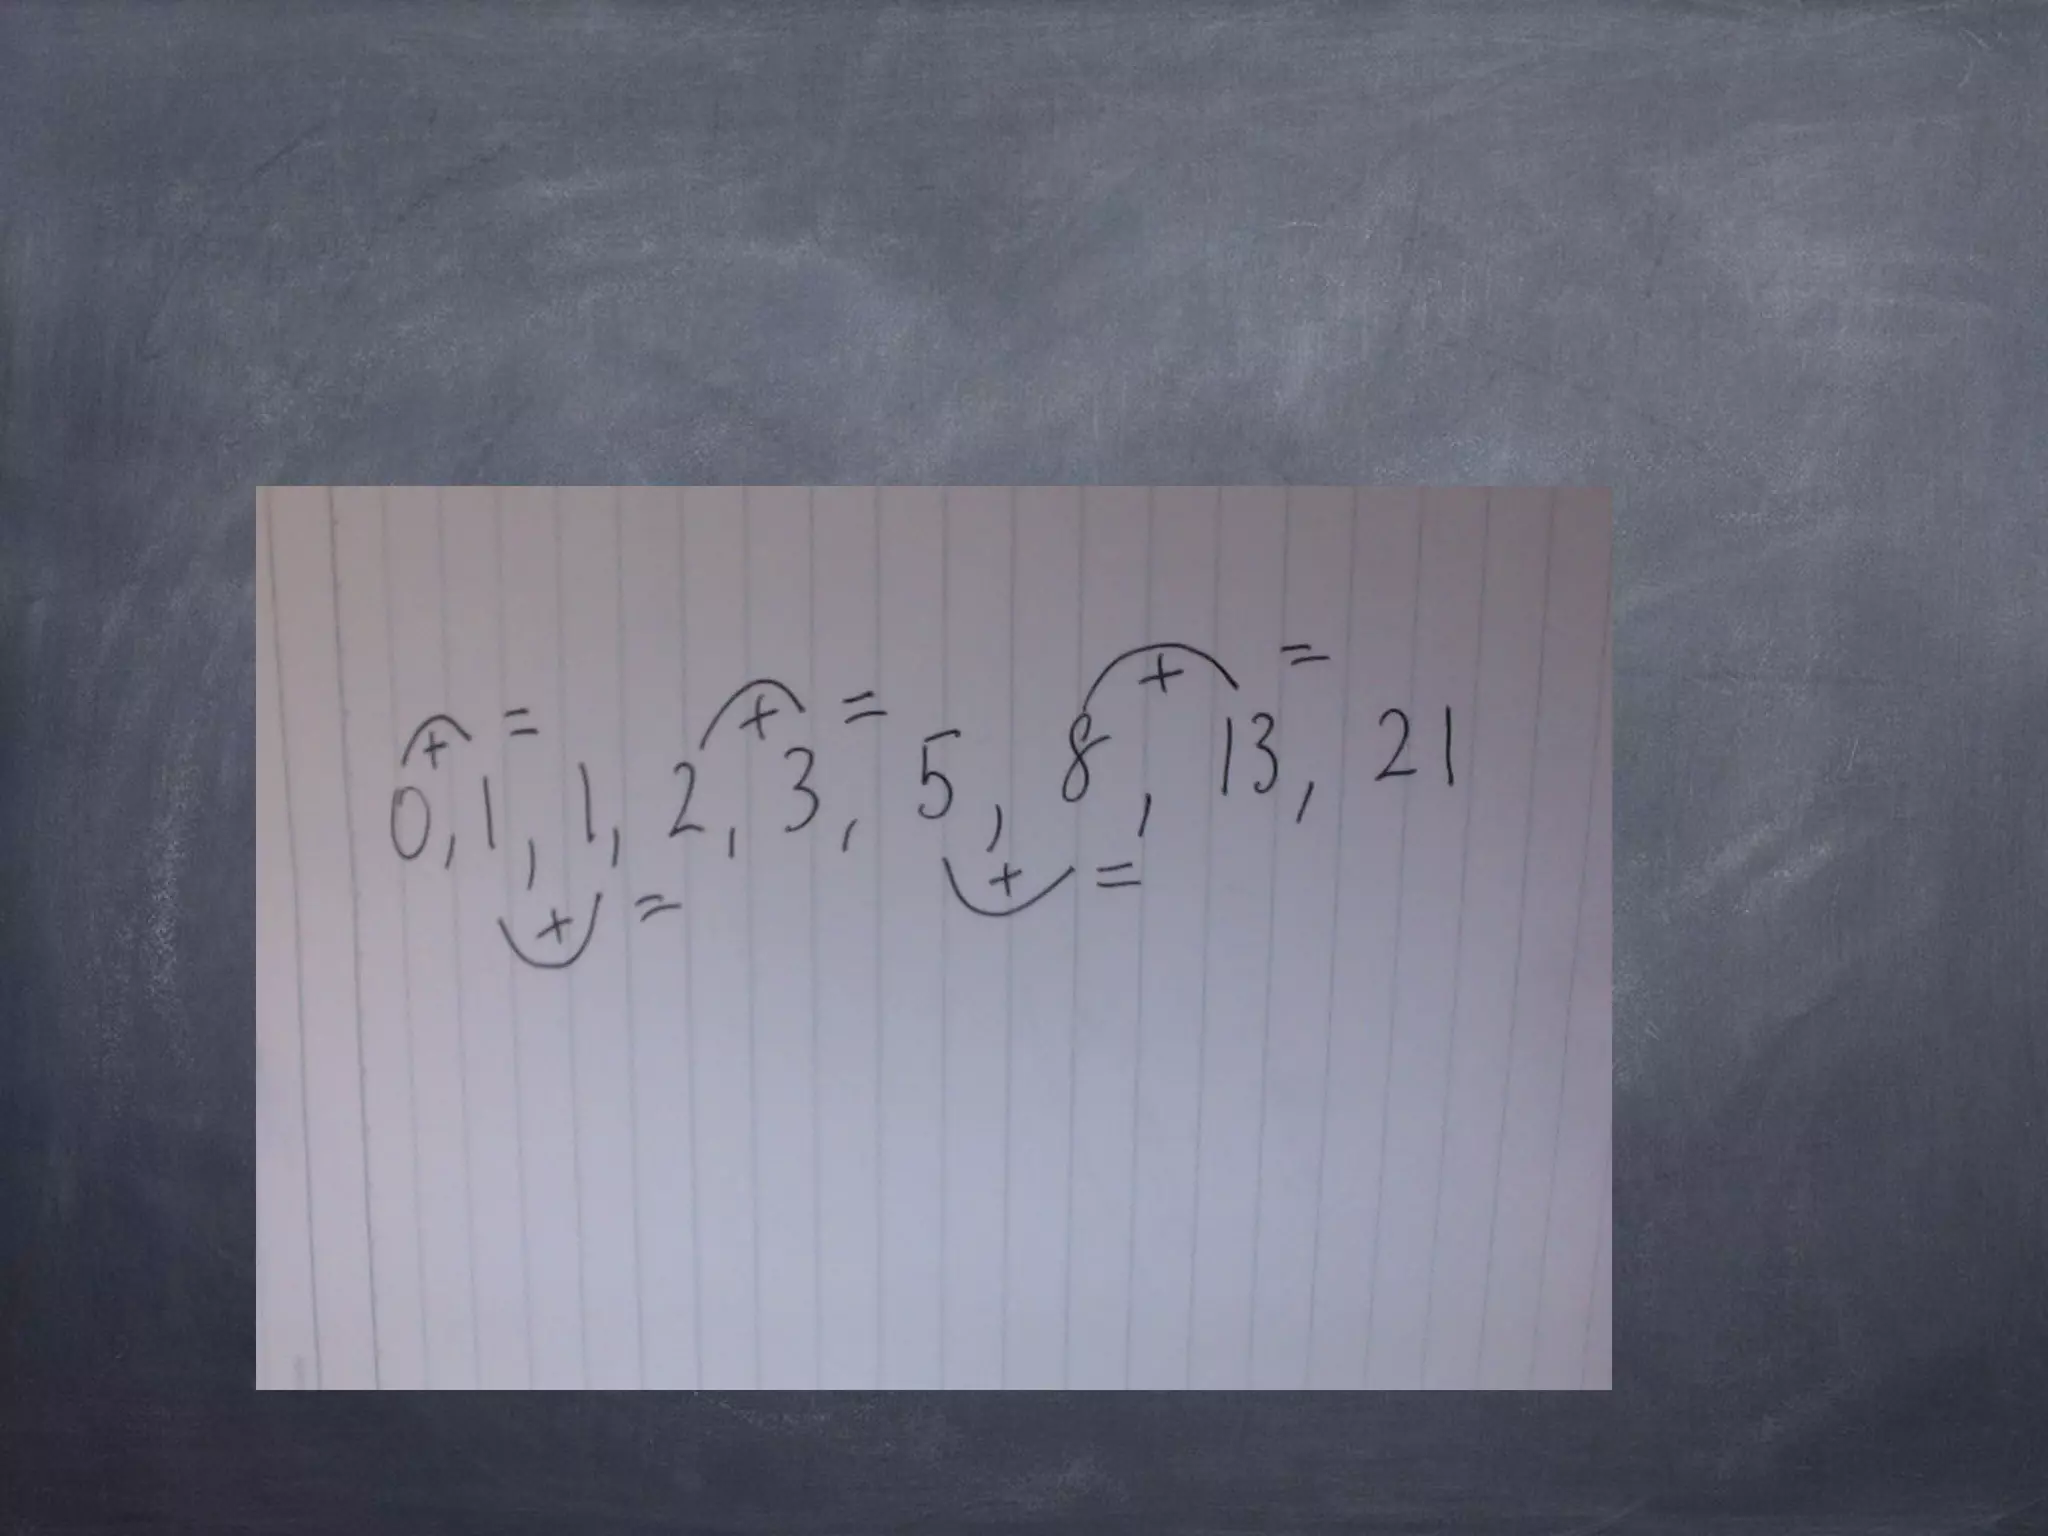 + = + = + =
0, 1, 1, 2, 3, 5, 8, 13, 21
+ = + =